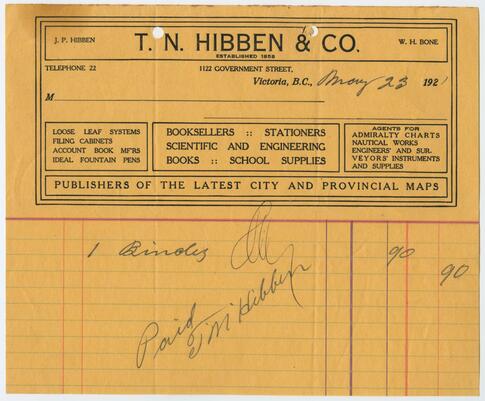 J. P. HIBBEN T. N. HIBBEN & CO. W. H. BONE
ESTABLISHED 1858
TELEPHONE 22 1122 GOVERNMENT STREET,
Victoria, B.C., May 23 1921
M
LOOSE LEAF SYSTEMS
FILING CABINETS
ACCOUNT BOOK MF'RS
IDEAL FOUNTAIN PENS
BOOKSELLERS :: STATIONERS
SCIENTIFIC AND ENGINEERING
BOOKS :: SCHOOL SUPPLIES
AGENTS FOR
ADMIRALTY CHARTS
NAUTICAL WORKS
ENGINEERS' AND SUR-
VEYORS' INSTRUMENTS
AND SUPPLIES
PUBLISHERS OF THE LATEST CITY AND PROVINCIAL MAPS
1 Binder 90
90
Paid
T N Hibben